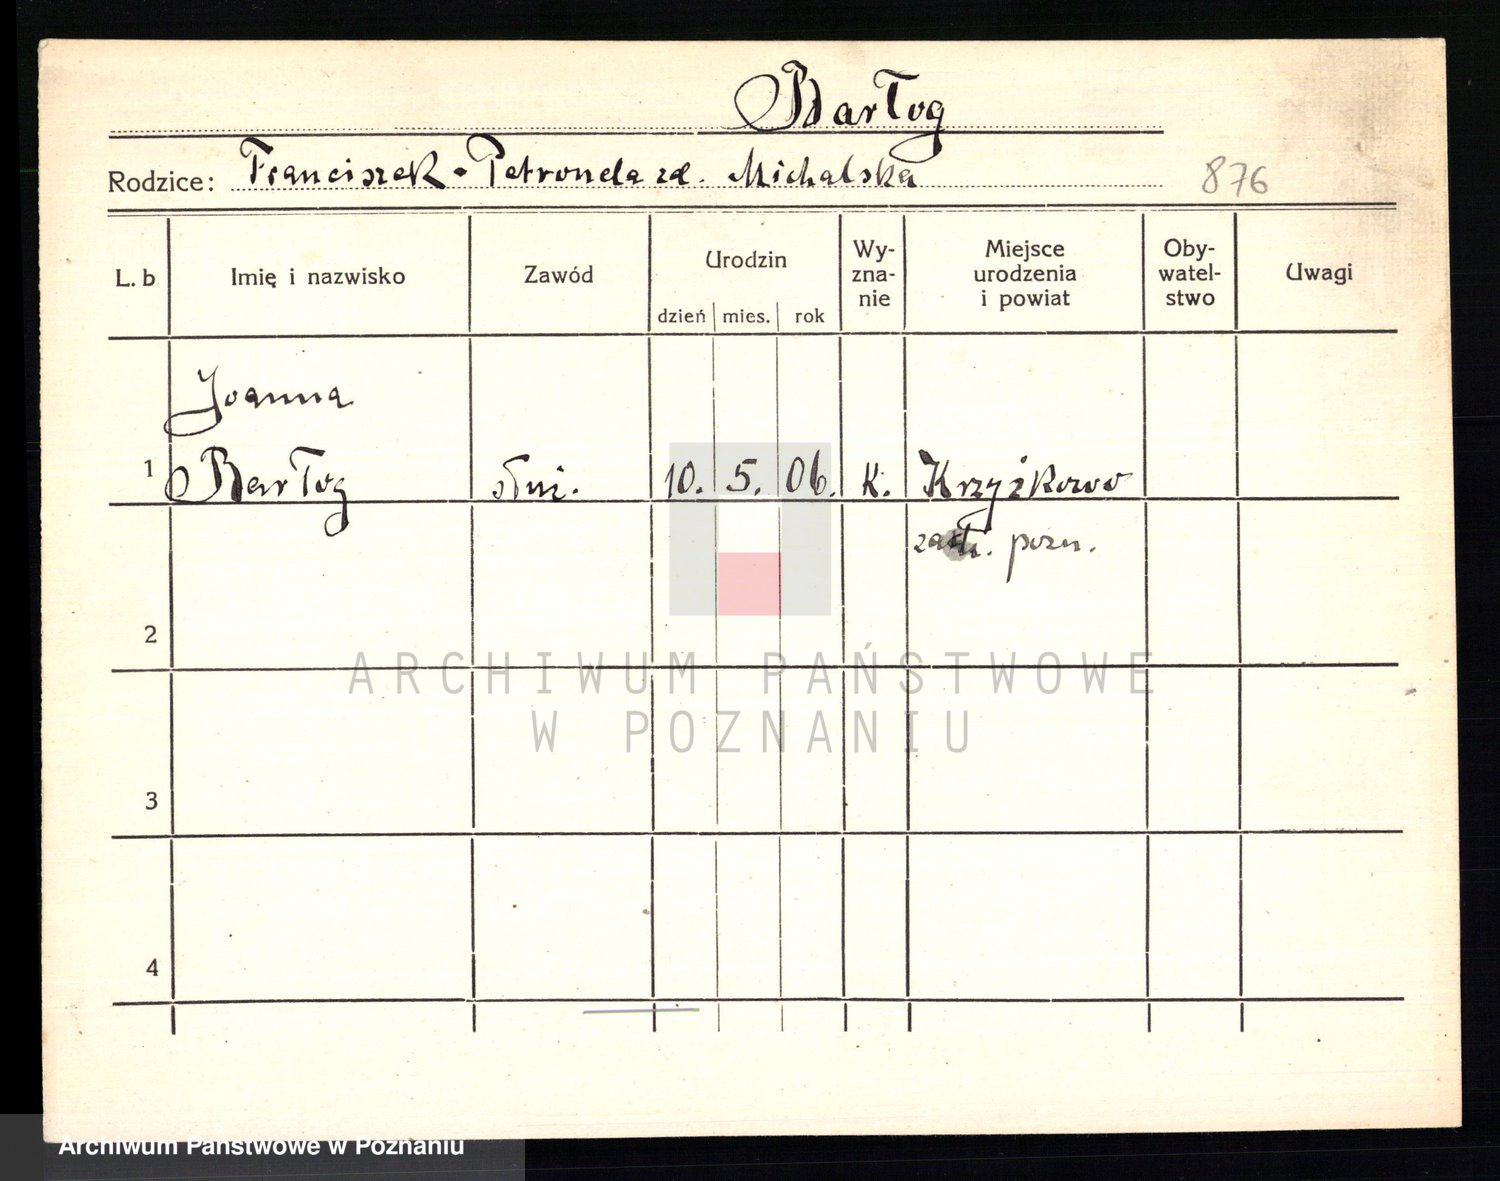 Bartog
Rodzice: Franciszek - Petronela zd. Michalska 876
L. b Imię i nazwisko Zawód Urodzin dzień mies. rok Wy-zna-nie Miejsce urodzenia i powiat Oby-watel-stwo Uwagi
Joanna
1 Bartog służ. 10. 5. 06. K. Krzyżkowo
pozn.
2
3
4
ARCHIWUM PAŃSTWOWE
W POZNANIU
Archiwum Państwowe w Poznaniu